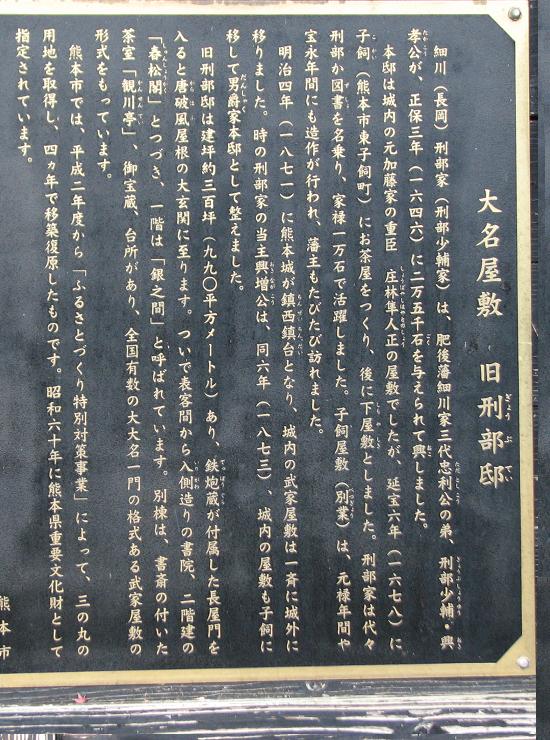 大名屋敷 旧刑部邸
細川(長岡)刑部家(刑部少輔家)は、肥後藩細川家三代忠利公の弟、刑部少輔・興
孝公が、正保三年(一六四六)に二万五千石を与えられて興しました。
本邸は城内の元加藤家の重臣 庄林隼人正の屋敷でしたが、延宝六年(一六七八)に
子飼(熊本市東子飼町)にお茶屋をつくり、後に下屋敷としました。刑部家は代々
刑部か図書を名乗り、家禄一万石で活躍しました。子飼屋敷(別業)は、元禄年間や
宝永年間にも造作が行われ、藩主もたびたび訪れました。
明治四年(一八七一)に熊本城が鎮西鎮台となり、城内の武家屋敷は一斉に城外に
移りました。時の刑部家の当主興増公は、同六年(一八七三)、城内の屋敷も子飼に
移して男爵家本邸として整えました。
旧刑部邸は建坪約三百坪(九九〇平方メートル)あり、鉄炮蔵が付属した長屋門を
入ると唐破風屋根の大玄関に至ります。ついで表客間から入側造りの書院、二階建の
「春松閣」とつづき、一階は「銀之間」と呼ばれています。別棟は、書斎の付いた
茶室「観川亭」、御宝蔵、台所があり、全国有数の大大名一門の格式ある武家屋敷の
形式をもっています。
熊本市では、平成二年度から「ふるさとづくり特別対策事業」によって、三の丸の
用地を取得し、四ヵ年で移築復原したものです。昭和六十年に熊本県重要文化財として
指定されています。
熊本市